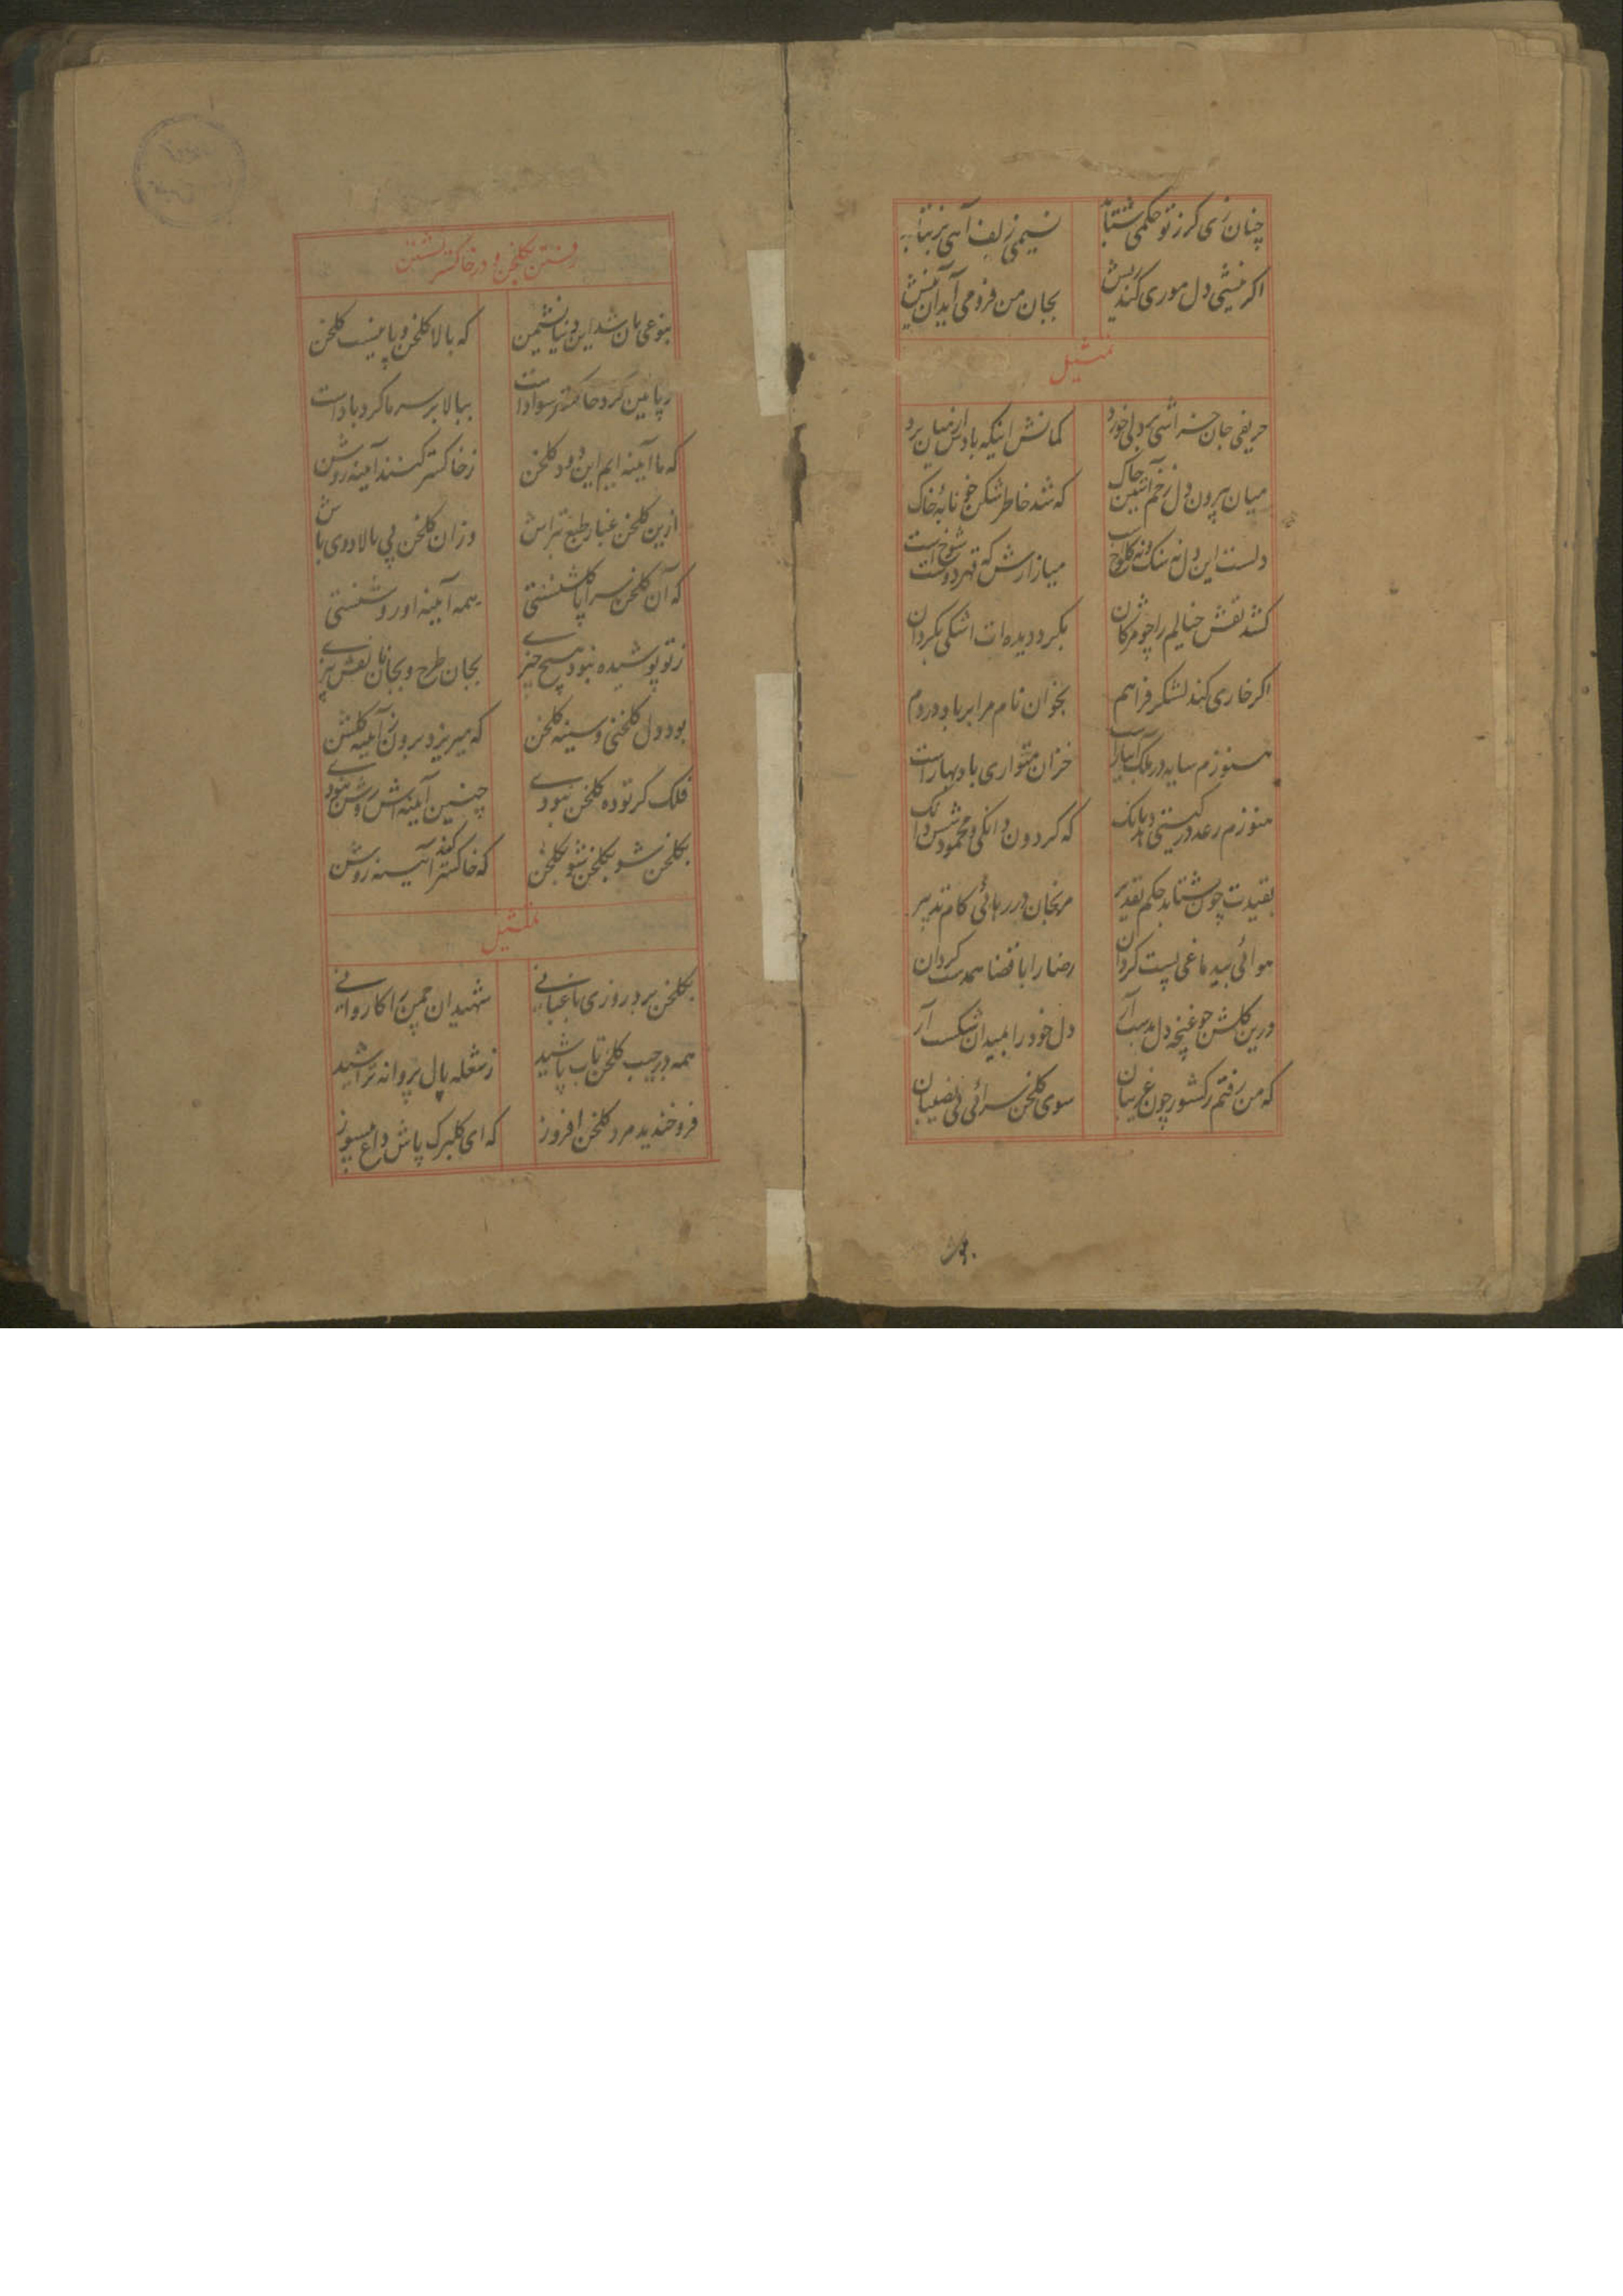 چنان زی کز تو حکمی نشتابد نسیمی زلف آهی بر نتابد
اگر نیشی دل موری کند ریش بجان من فرو می آید آن نیش
تمثیل
حریفی جان خراشی بر دلی خورد گمانش اینکه بادش از میان برد
میان بیرون دل زخم آتشین چاک که شد خاطر شکن خونابهٔ خاک
دلست این دل نه سنگ و نه کلوخ است میازارش که قهر دوست شوخ است
کشد نقش خیالم را چو مژگان بگرد دیده ات اشکی بگردان
اگر خاری کند لشکر فراهم بخوان نام مرا بر باد و بر دم
هنوزم سایه در ملک خزان متواری باد بهار است
هنوزم رعد در گیتی دهد بانگ که گردون دانگی و محمود شش دانگ
بقیدت چون شتابد حکم تقدیر مرنجان در رهائی کام تدبیر
هوائی بیدماغی پست گردان رضا را با قضا همدست گردان
درین گلشن چو غنچه دل بدست آر دل خود را بمیدان شکست آر
که من رفتم ز کشور چون غریبان سوی گلخن سرائی بی نصیبان
رفتن بگلخن و در خاکستر نشستن
بنوعی بان شد این دنیا نشیمن که بالا گلخن و پایینست گلخن
ز پایین گرد خاکستر سواد است ببالا بر سر ما گرد باد است
که ما آیینه ایم این دود گلخن ز خاکستر کنند آیینه روشن
ازین گلخن غبار طبع بتراش وزان گلخن پی بالا دوی باش
که آن گلخن سراپا گلشنستی همه آیینه او روشنستی
ز تو پوشیده نبود هیچ چیزی بجان طرح و بجانان نقش بیزی
بود دل گلخنی و سینه گلخن که میریزد برون ز آیینه گلشن
فلک گر توده گلخن نبودی چنین آیینه اش روشن نبودی
بگلخن شو بگلخن شو بگلخن که خاکستر کند آیینه روشن
تمثیل
بگلخن برد روزی باغبانی شهیدان چمن را کاروانی
همه در جیب گلخن تاب پاشید ز شعله بال پروانه تراشید
فرو خندید مرد گلخن افروز که ای گلبرگ پاش داغ میسوز